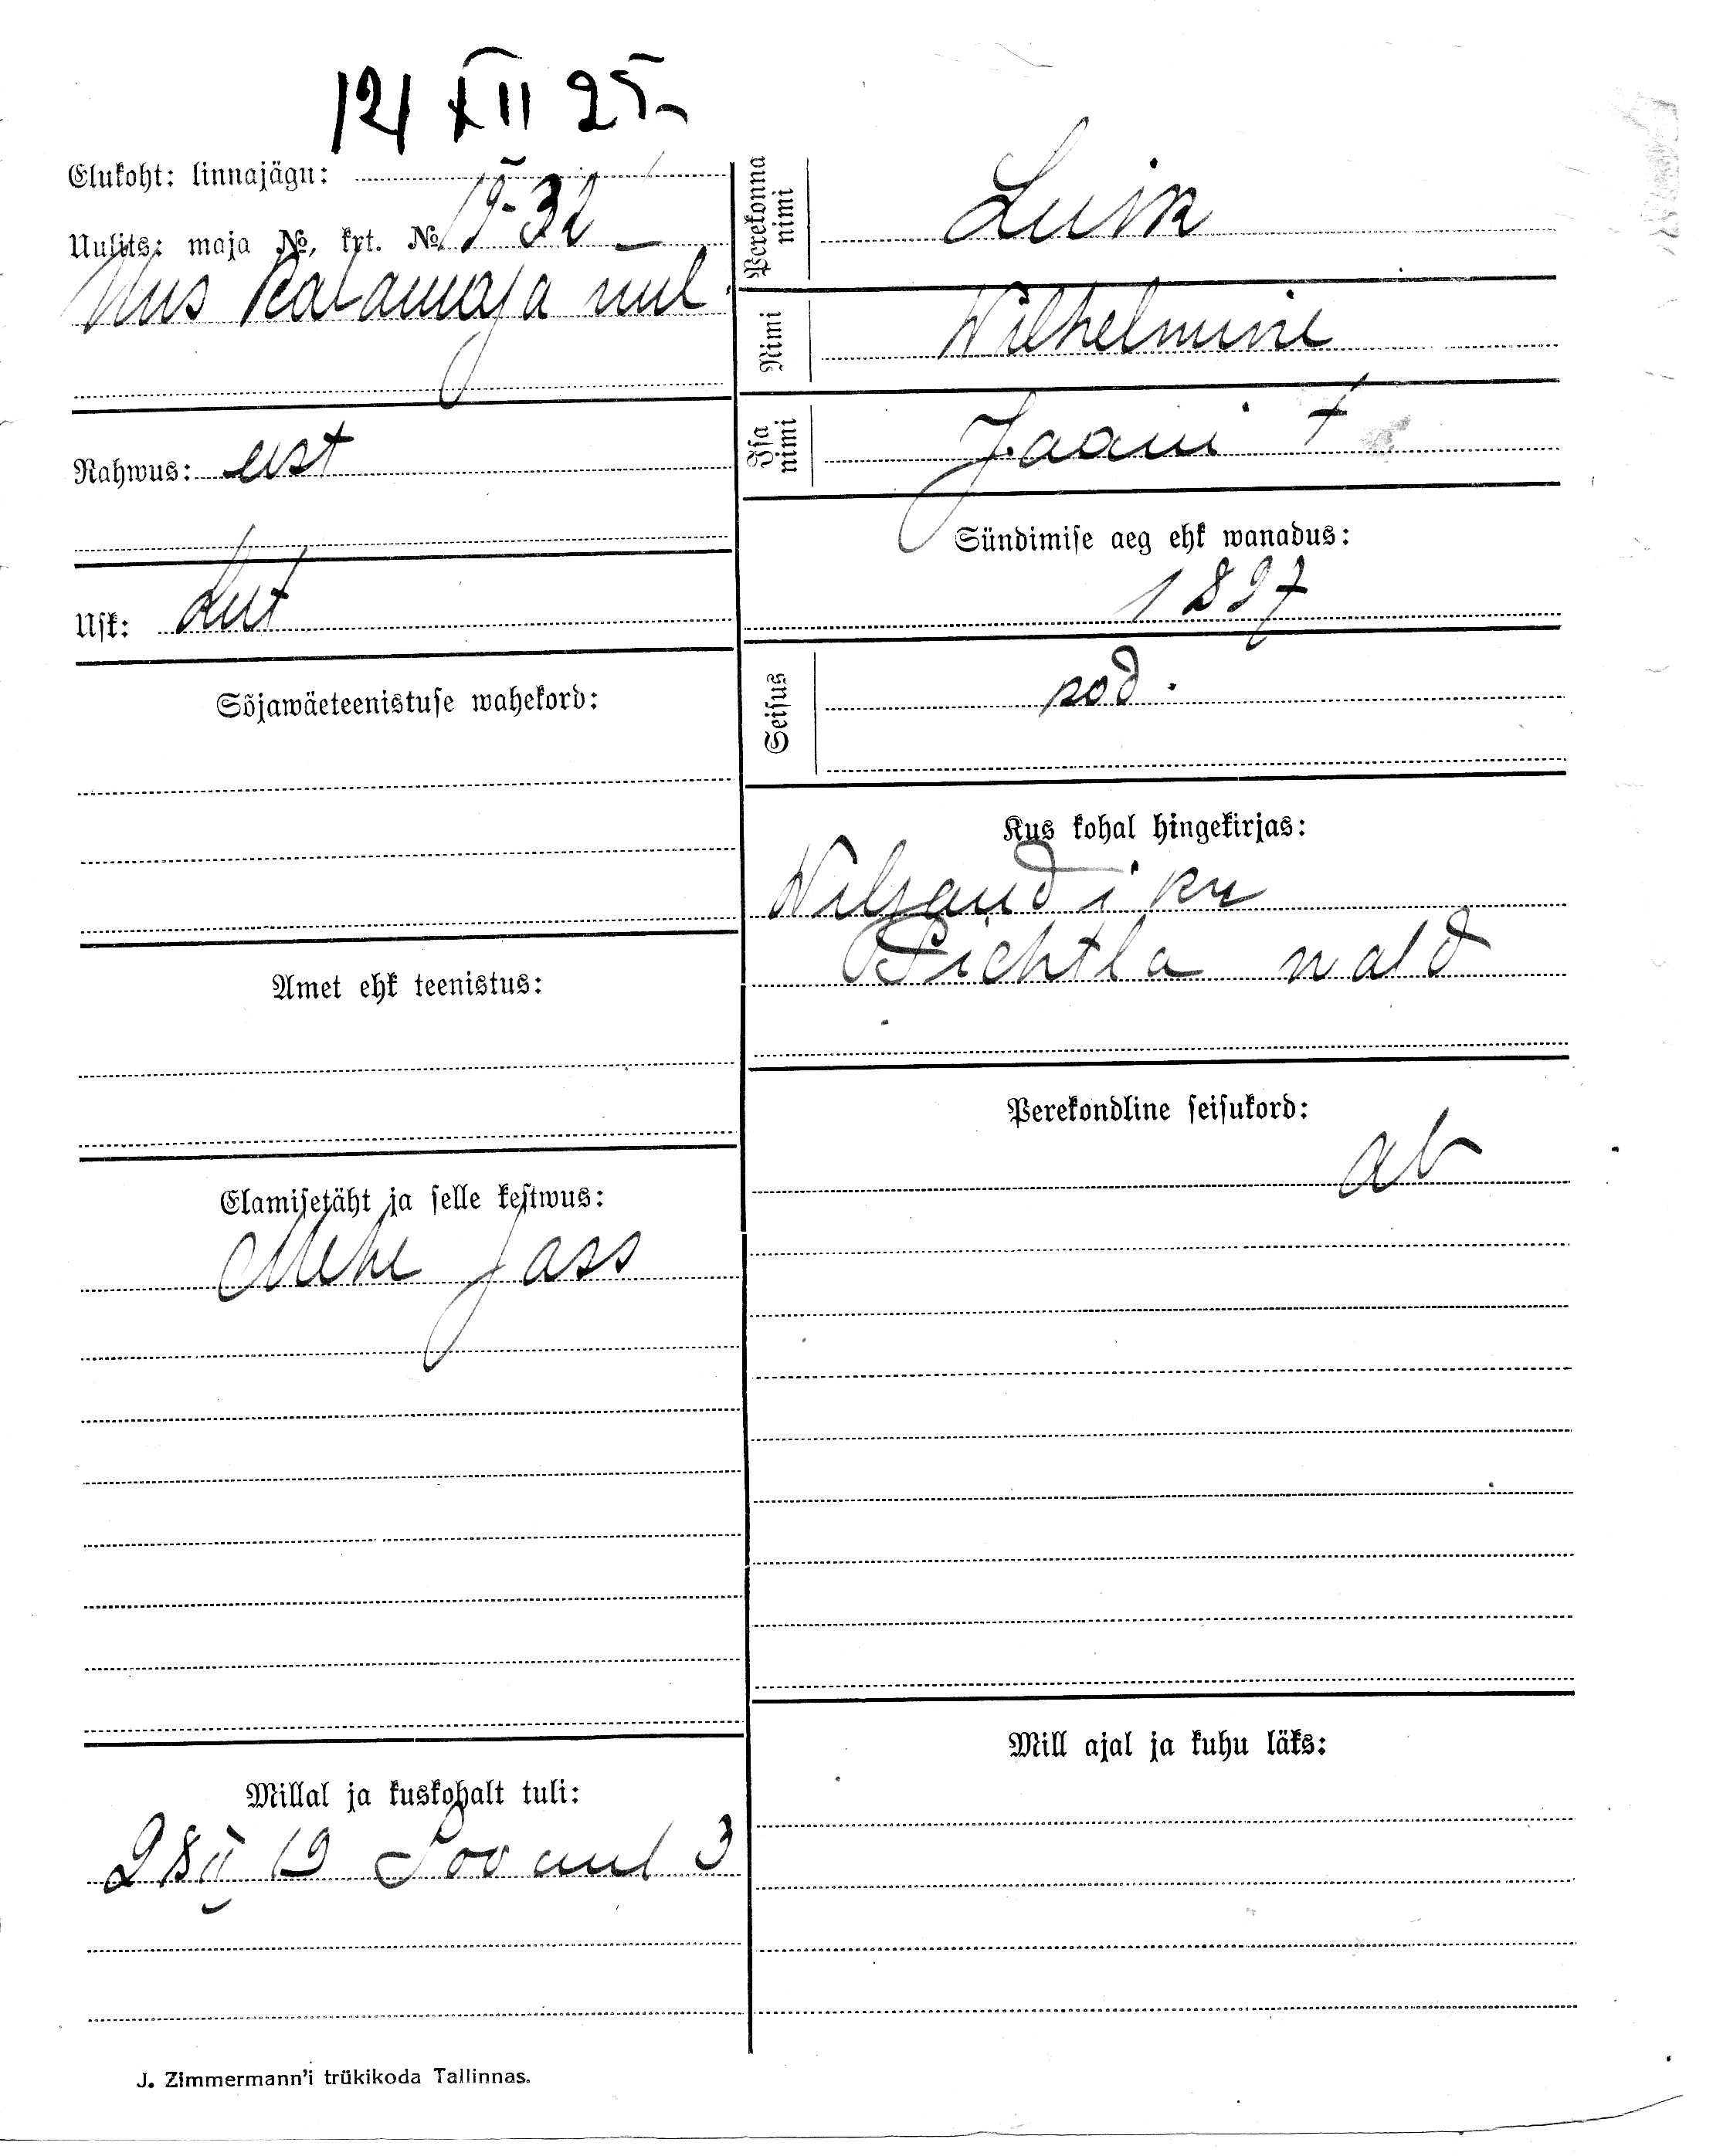 12/XII 25
Elukoht: linnajägu:
Uulits: maja №, krt. № 19-32
Uus Kalamaja uul.
Rahwus: eest
Usk: Lut
Sõjawäeteenistuse wahekord:
Amet ehk teenistus:
Elamisetäht ja selle kestwus:
Mehe pass
Millal ja kuskohalt tuli:
28 II 19 Soo uul 3
J. Zimmermann'i trükikoda Tallinnas.
Perekonna nimi Luik
Nimi Wilhelmine
Isa nimi Jaani t
Sündimise aeg ehk wanadus:
1897
Seisus kod.
Kus kohal hingekirjas:
Wiljandi kr
wald
Perekondline seisukord:
ab
Mill ajal ja kuhu läks: